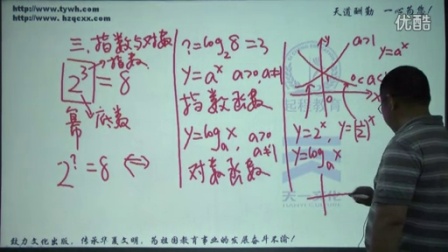 http://www.tywh.com
http://www.hzqcxx.com
天道酬勤
优酷
三、指数与对数
指数
2³=8
幂
底数
2^?=8 ⇔
?=log₂8=3
y=a^x a>0,a≠1
指数函数
y=log_a x, a>0
a≠1
对数函数
y
a>1
y=a^x
0<a<
x
y=2^x, y=(1/2)^x
y=log_a x
致力文化出版，传承华夏文明，为祖国教育事业的发展奋斗不偷！